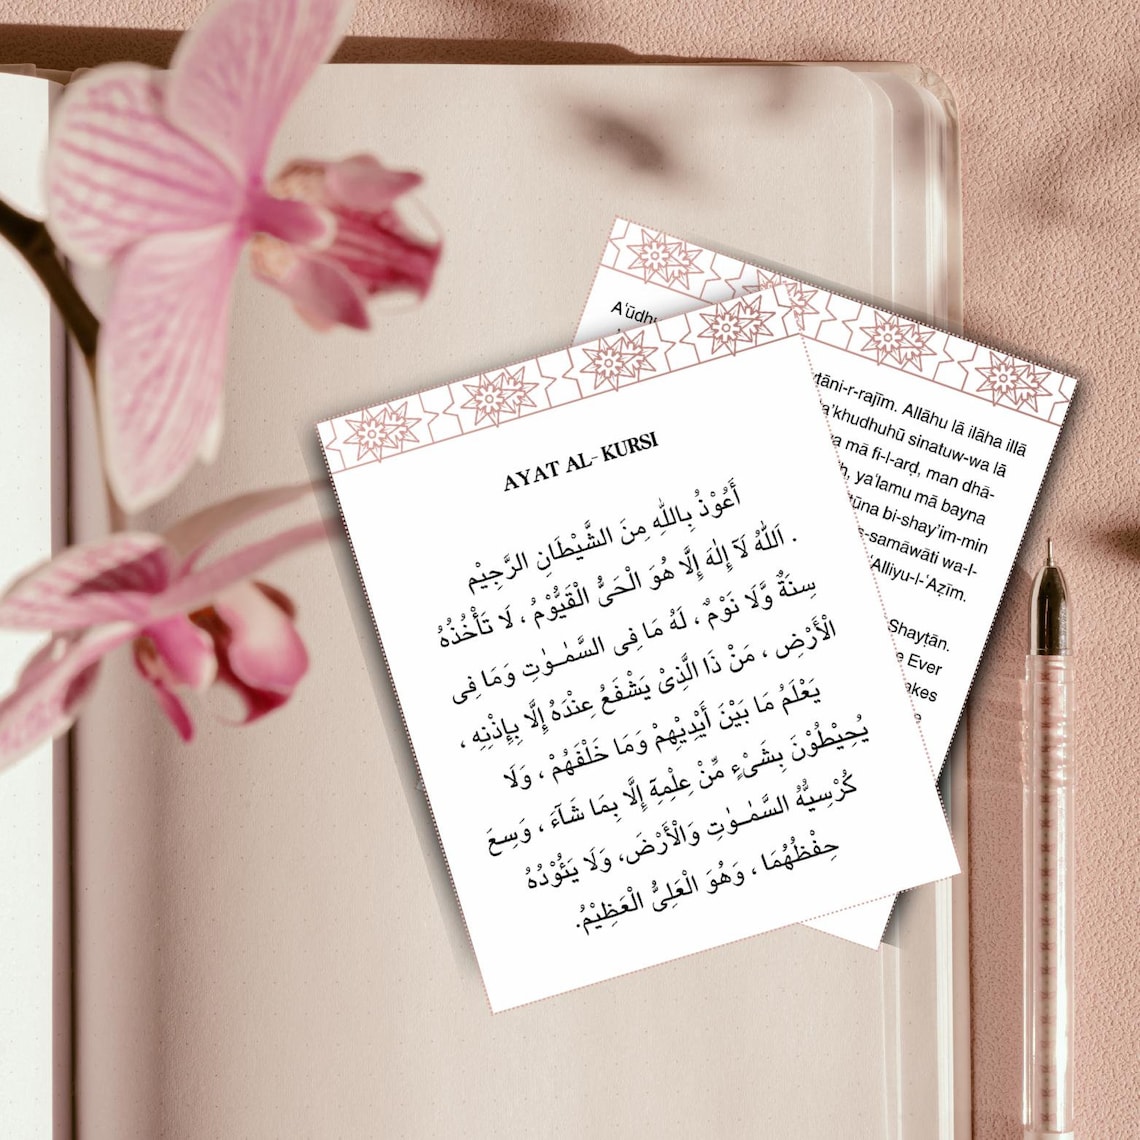 AYAT AL-KURSI
أَعُوْذُ بِاللّٰهِ مِنَ الشَّيْطَانِ الرَّجِيْم
. اَللّٰهُ لَآ إِلٰهَ إِلَّا هُوَ الْحَىُّ الْقَيُّوْمُ ، لَا تَأْخُذُهُ
سِنَةٌ وَّلَا نَوْمٌ ، لَهُ مَا فِى السَّمٰـوٰتِ وَمَا فِى
الْأَرْضِ ، مَنْ ذَا الَّذِىْ يَشْفَعُ عِنْدَهُ إِلَّا بِإِذْنِهِ ،
يَعْلَمُ مَا بَيْنَ أَيْدِيْهِمْ وَمَا خَلْفَهُمْ ، وَلَا
يُحِيْطُوْنَ بِشَىْءٍ مِّنْ عِلْمِهِٓ إِلَّا بِمَا شَآءَ ، وَسِعَ
كُرْسِيُّهُ السَّمٰـوٰتِ وَالْأَرْضَ، وَلَا يَئُوْدُهُ
حِفْظُهُمَا ، وَهُوَ الْعَلِىُّ الْعَظِيْمُ.
-r-rajīm. Allāhu lā ilāha illā
sinatuw-wa lā
mā fi-l-arḍ, man dhā-
ya'lamu mā bayna
bi-shay'im-min
samāwāti wa-l-
'Alliyu-l-'Aẓīm.
Shayṭān.
Ever